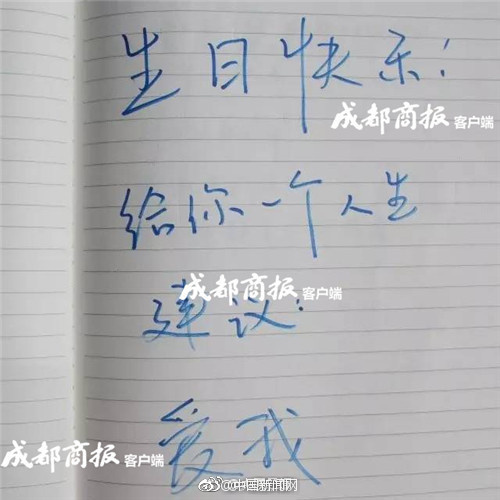 生日快乐！
成都商报 客户端
给你一个人生
成都商报 客户端
建议：
爱我
成都商报 客户端
@中国新闻网